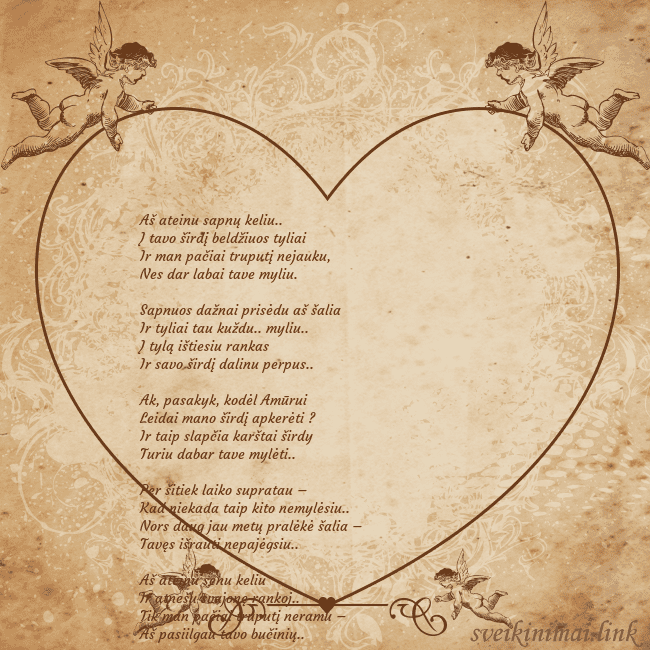 Aš ateinu sapnų keliu..
Į tavo širdį beldžiuos tyliai
Ir man pačiai truputį nejauku,
Nes dar labai tave myliu.

Sapnuos dažnai prisėdu aš šalia
Ir tyliai tau kuždu.. myliu..
Į tylą ištiesiu rankas
Ir savo širdį dalinu perpus..

Ak, pasakyk, kodėl Amūrui
Leidai mano širdį apkerėti ?
Ir taip slapčia karštai širdy
Turiu dabar tave mylėti..

Per šitiek laiko supratau –
Kad niekada taip kito nemylėsiu..
Nors daug jau metų pralėkė šalia –
Tavęs išrauti nepajėgsiu..

Aš ateinu senu keliu
Ir atnešu svajonę rankoj..
Tik man pačiai truputį neramu –
Aš pasiilgau tavo bučinių..
sveikinimai.link